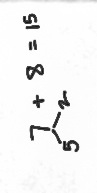 7 + 8 = 15
5 2